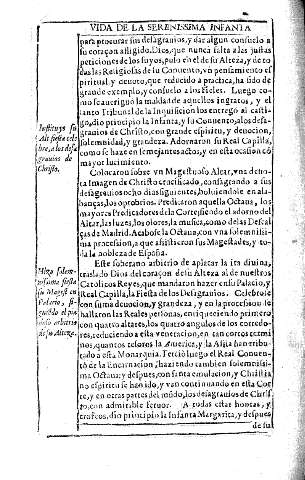 VIDA DE LA SERENISSIMA INFANTA
para procurar sus desagrauios, y dar algun consuelo a
su coraçon afligido. Dios, que nunca falta a las justas
peticiones de los suyos, puso en el de su Alteza, y de to
das las Religiosas de su Conuento, vn pensamiento es
piritual y deuoto, que reducido a practica, ha sido de
grande exemplo, y consuelo a los fieles. Luego co
mo se aueriguò la maldad de aquellos ingratos, y el
santo Tribunal de la Inquisicion los entregò al casti-
go, dio principio la Infanta, y su Conuento, a los desa-
grauios de Christo, con grande espiritu, y deuocion,
solemnidad, y grandeza. Adornaron su Real Capilla,
como se haze en semejantes actos, y en esta ocasion cõ
mayor lucimiento.
Instituyo su
Alt. fiesta cele
bre, a los desa
grauios de
Christo.
Colocaron sobre vn Magestuoso Altar, vna deuo
ta Imagen de Christo crucificado, consagrando a sus
desagrauios ocho dias siguientes, boluiendole en ala-
banças, los oprobrios. Predicaron aquella Octaua, los
mayores Predicadores de la Corte, siendo el adorno del
Altar, las luzes, los olores, la musica, como de las Descal
ças de Madrid. Acabose la Octaua, con vna solemnissi-
ma procession, a que assistieron sus Magestades, y to-
da la nobleza de España.
Este soberano arbitrio de aplacar la ira diuina,
trasladò Dios del coraçon de su Alteza al de nuestros
Catolicos Reyes, que mandaron hazer en su Palacio, y
Real Capilla, la Fiesta de los Desagrauios. Celebrose
con suma deuocion, y grandeza, y en la procession se
hallaron las Reales personas, enriqueciendo primero,
con quatro altares, los quatro angulos de los corredo-
res, reduciendo a esta veneracion, en tan cortos termi
nos, quantos tesoros la America, y la Assia han tribu-
tado a esta Monarquia. Tercio luego el Real Conuen-
to de la Encarnacion, haziendo tambien solemnissi-
ma Octaua; y despues, con santa emulacion, y Christia
no espiritu se han ido, y van continuando en esta Cor
te, y en otras partes del mũdo, los desagrauios de Chris-
to, con admirable feruor. A todas estas honras, y
trofeos, dio principio la Infanta Margarita, y despues
de su
Hizo solem-
nissima fiesta
su Magest. en
Palacio, si-
guiẽdo el pia
doso arbitrio
de su Alteza.